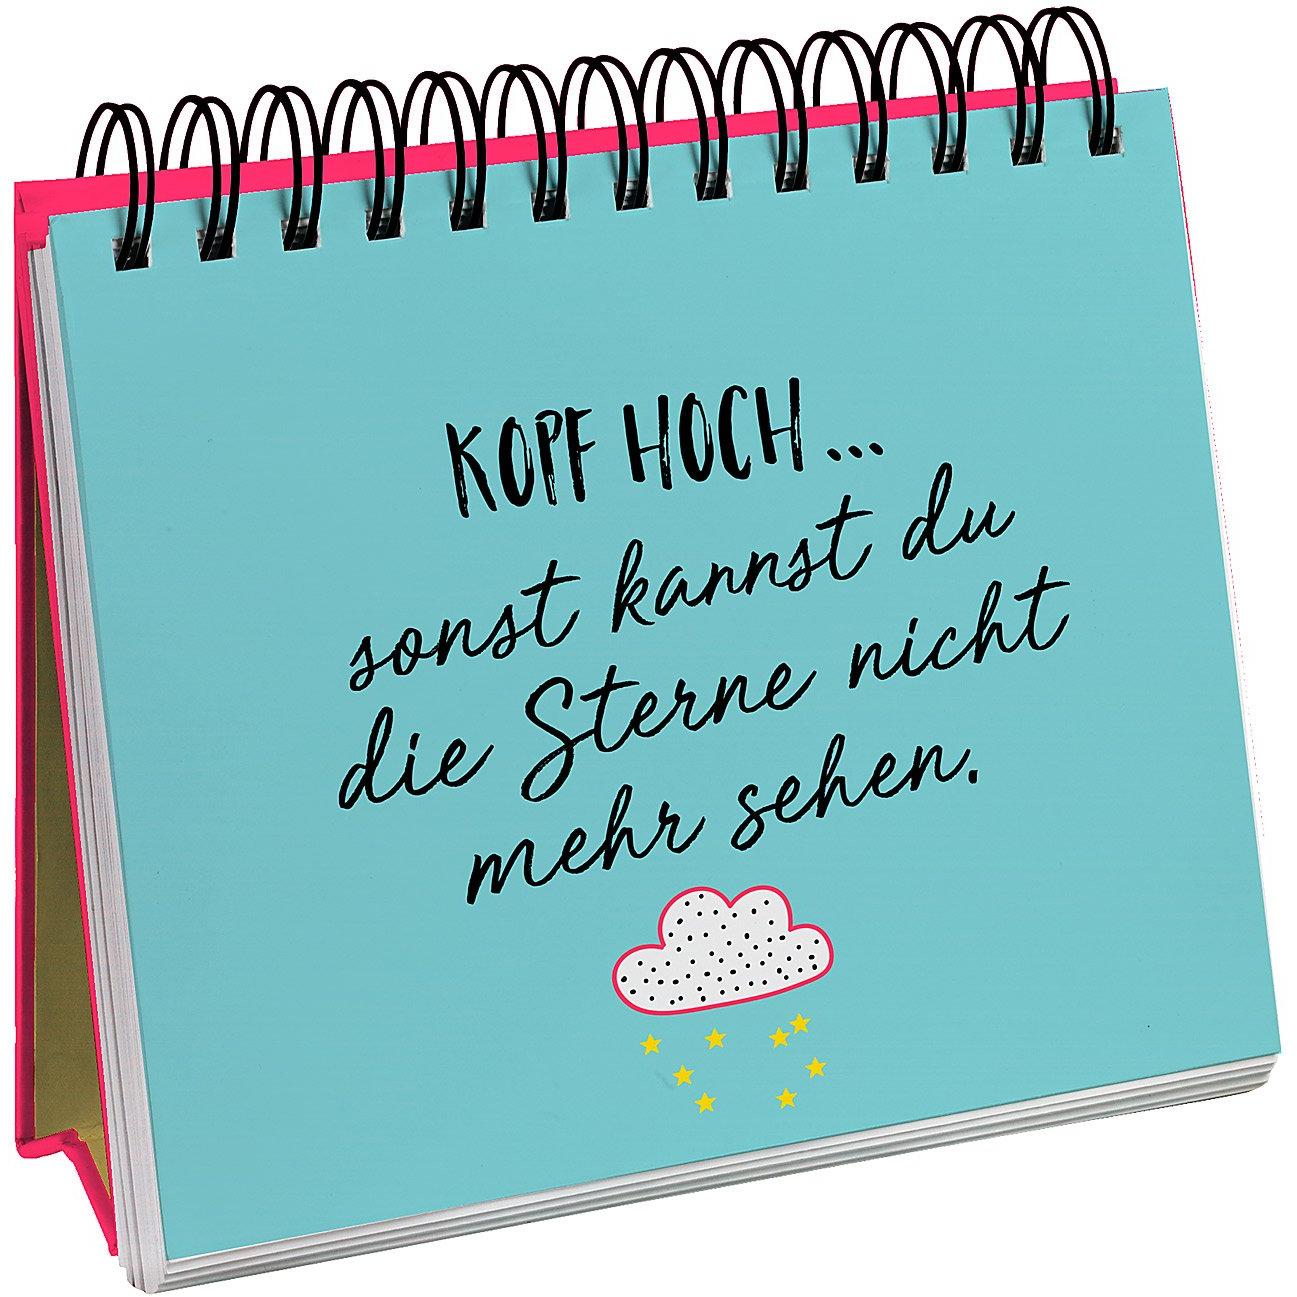 KOPF HOCH...
sonst kannst du
die Sterne nicht
mehr sehen.